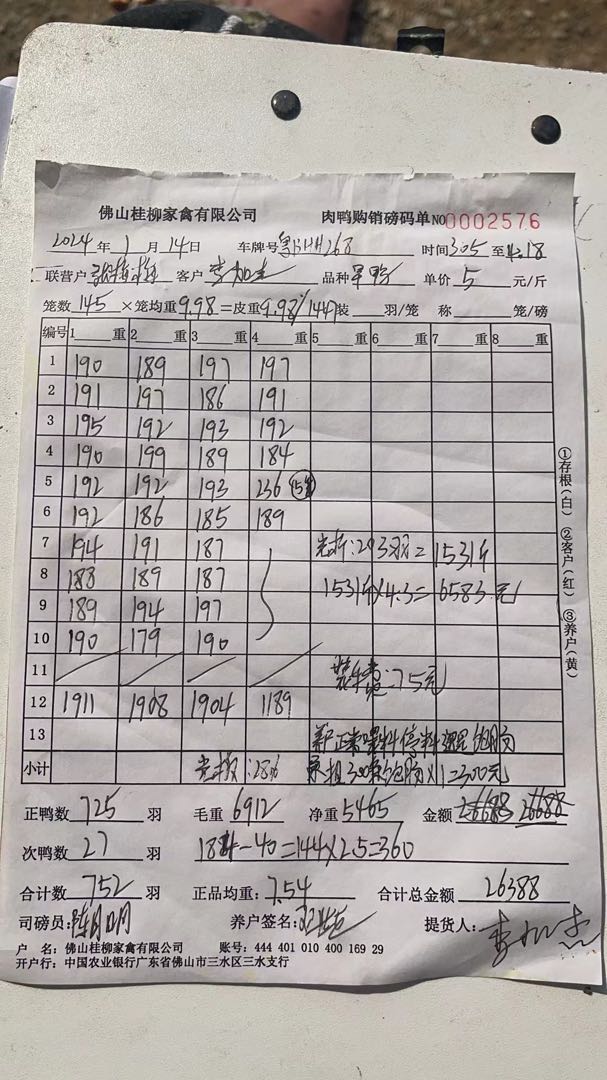 佛山桂柳家禽有限公司 肉鸭购销磅码单 NO 0002576
2024年 1月 14日 车牌号 粤 268 时间 3:05 至 4:18
联营户 客户 李加 品种 单价 5 元/斤
笼数 145 ×笼均重 9.98 =皮重 9.98 1447 装 羽/笼 称 笼/磅
编号 1 重 2 重 3 重 4 重 5 重 6 重 7 重 8 重
1 190 189 197 197
2 191 197 186 191
3 195 192 193 192
4 190 199 189 184
5 192 192 193 236
6 192 186 185 189
7 194 191 187 293羽=1531斤
8 188 189 187 1531斤×4.3=6583元
9 189 194 197
10 190 179 190
11 费:75元
12 1911 1908 1904 1189
13 正常 料停料
小计 300 ×1=300元
正鸭数 725 羽 毛重 6912 净重 5465 金额 26688
次鸭数 27 羽 184-40=144×2.5=360
合计数 752 羽 正品均重: 7.54 合计总金额 26388
司磅员: 陈 明 养户签名: 提货人: 李
户 名: 佛山桂柳家禽有限公司 账号: 444 401 010 400 169 29
开户行: 中国农业银行广东省佛山市三水区三水支行
①存根(白) ②客户(红) ③养户(黄)